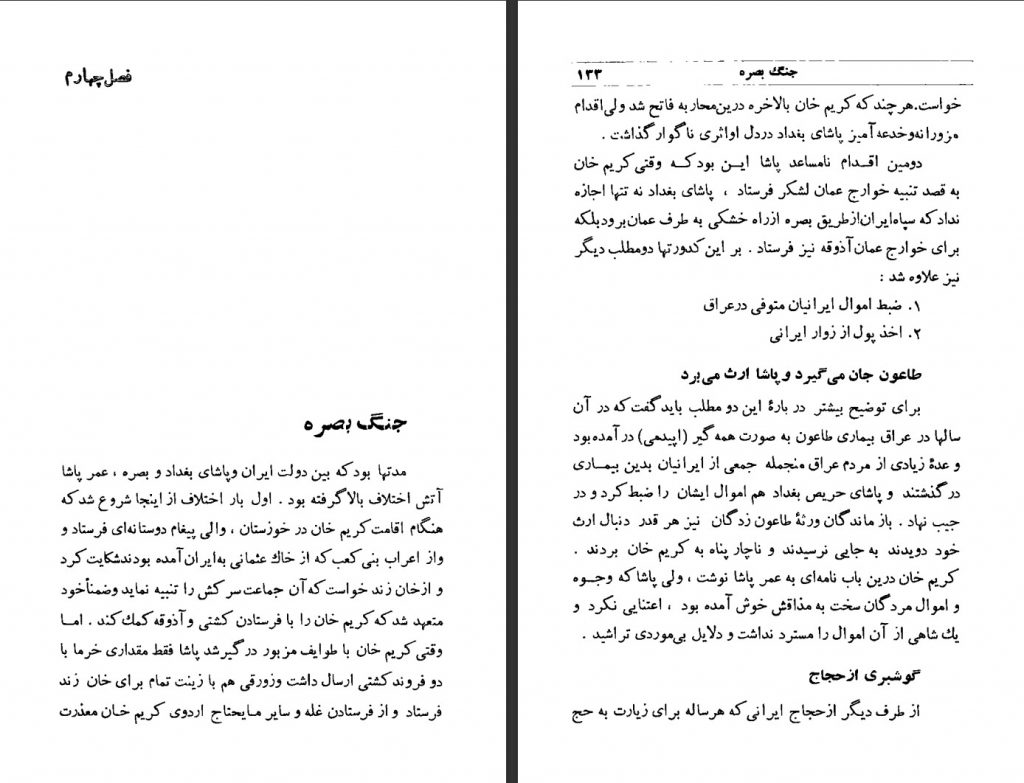 فصل چهارم
جنگ بصره
مدتها بود که بین دولت ایران و پاشای بغداد و بصره ، عمر پاشا
آتش اختلاف بالا گرفته بود . اول بار اختلاف از اینجا شروع شد که
هنگام اقامت کریم خان در خوزستان ، والی پیغام دوستانه‌ای فرستاد و
و از اعراب بنی کعب که از خاك عثمانی به ایران آمده بودند شکایت کرد
و از خان زند خواست که آن جماعت سرکش را تنبیه نماید وضمناً خود
متعهد شد که کریم خان را با فرستادن کشتی و آذوقه کمك کند . امـا
وقتی کریم خان با طوایف مزبور درگیر شد پاشا فقط مقداری خرما با
دو فروند کشتی ارسال داشت وزورقی هم با زینت تمام برای خان زند
فرستاد و از فرستادن غله و سایر مـایحتاج اردوی کریم خـان معذرت
جنگ بصره ۱۳۳
خواست.هر چند که کریم خان بالاخره درین محاربه فاتح شد ولی اقدام
مزورانه وخدعه آمیز پاشای بغداد در دل او اثری ناگوار گذاشت .
دومین اقـدام نامساعد پاشا ایـن بود کـه وقتی کریم خان
به قصد تنبیه خوارج عمان لشکر فرستاد ، پاشای بغداد نه تنها اجازه
نداد که سپاه ایران از طریق بصره از راه خشکی به طرف عمان برود بلکه
برای خوارج عمان آذوقه نیز فرستاد . بر این کدورتها دو مطلب دیگر
نیز علاوه شد :
۱. ضبط اموال ایرانیان متوفی در عراق
۲. اخذ پول از زوار ایرانی
طاعون جان می‌گیرد و پاشا ارث می‌برد
برای توضیح بیشتر در بارهٔ این دو مطلب باید گفت که در آن
سالها در عراق بیماری طاعون به صورت همه گیر (اپیدمی) در آمده بود
و عدهٔ زیادی از مردم عراق منجمله جمعی از ایرانیان بدین بیمـاری
در گذشتند و پاشای حریص بغداد هم اموال ایشان را ضبط کرد و در
جیب نهاد . باز ماندگان ورثهٔ طاعون زدگان نیز هر قدر دنبال ارث
خود دویدند به جایی نرسیدند و ناچار پناه به کریم خان بردند .
کریم خان درین باب نامه‌ای به عمر پاشا نوشت ، ولی پاشا که وجـوه
و اموال مردگان سخت به مذاقش خوش آمده بود ، اعتنایی نکرد و
یك شاهی از آن اموال را مسترد نداشت و دلایل بی‌موردی تراشید .
گوشبری از حجاج
از طرف دیگر از حجاج ایرانی که هر ساله برای زیارت به حج